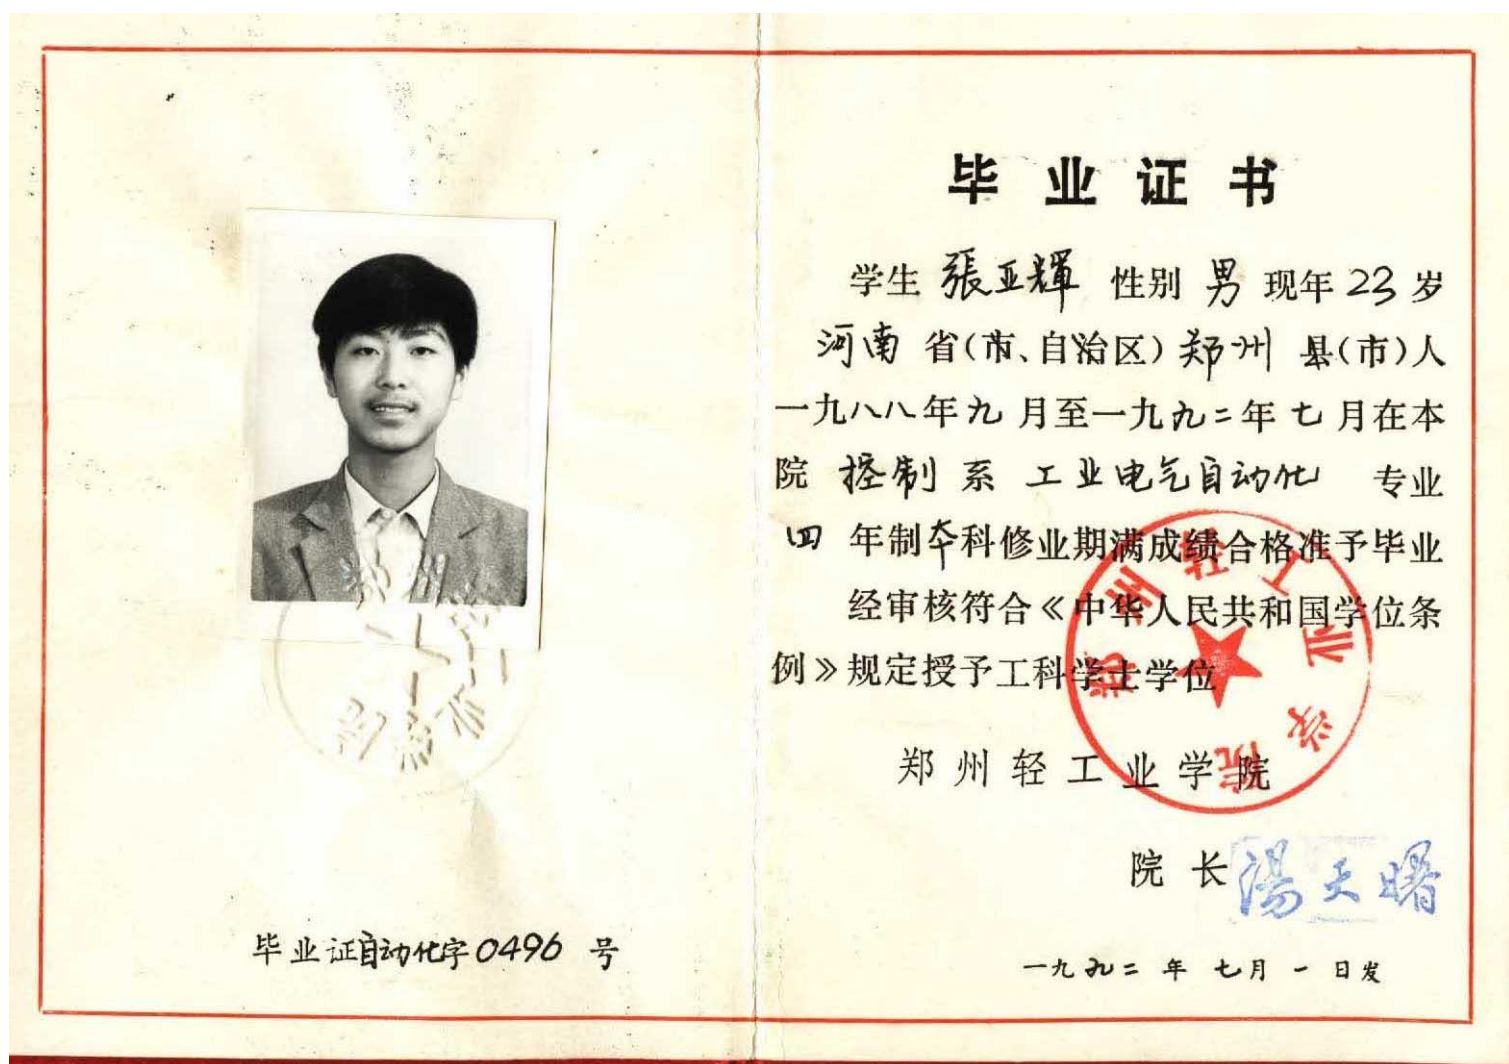 毕业证自动化字0496 号
毕业证书
学生 張亚輝 性别 男 现年23岁
河南 省(市、自治区)郑州 县(市)人
一九八八年九月至一九九二年七月在本
院 控制 系 工业电气自动化 专业
四 年制本科修业期满成绩合格准予毕业
经审核符合《中华人民共和国学位条
例》规定授予工科学士学位
郑州轻工业学院
郑州轻工业学院
院长 湯天曙
一九九二年七月一日发